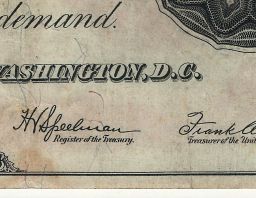 demand.
WASHINGTON, D.C.
H V Speelman Frank
Register of the Treasury. Treasurer of the Unit